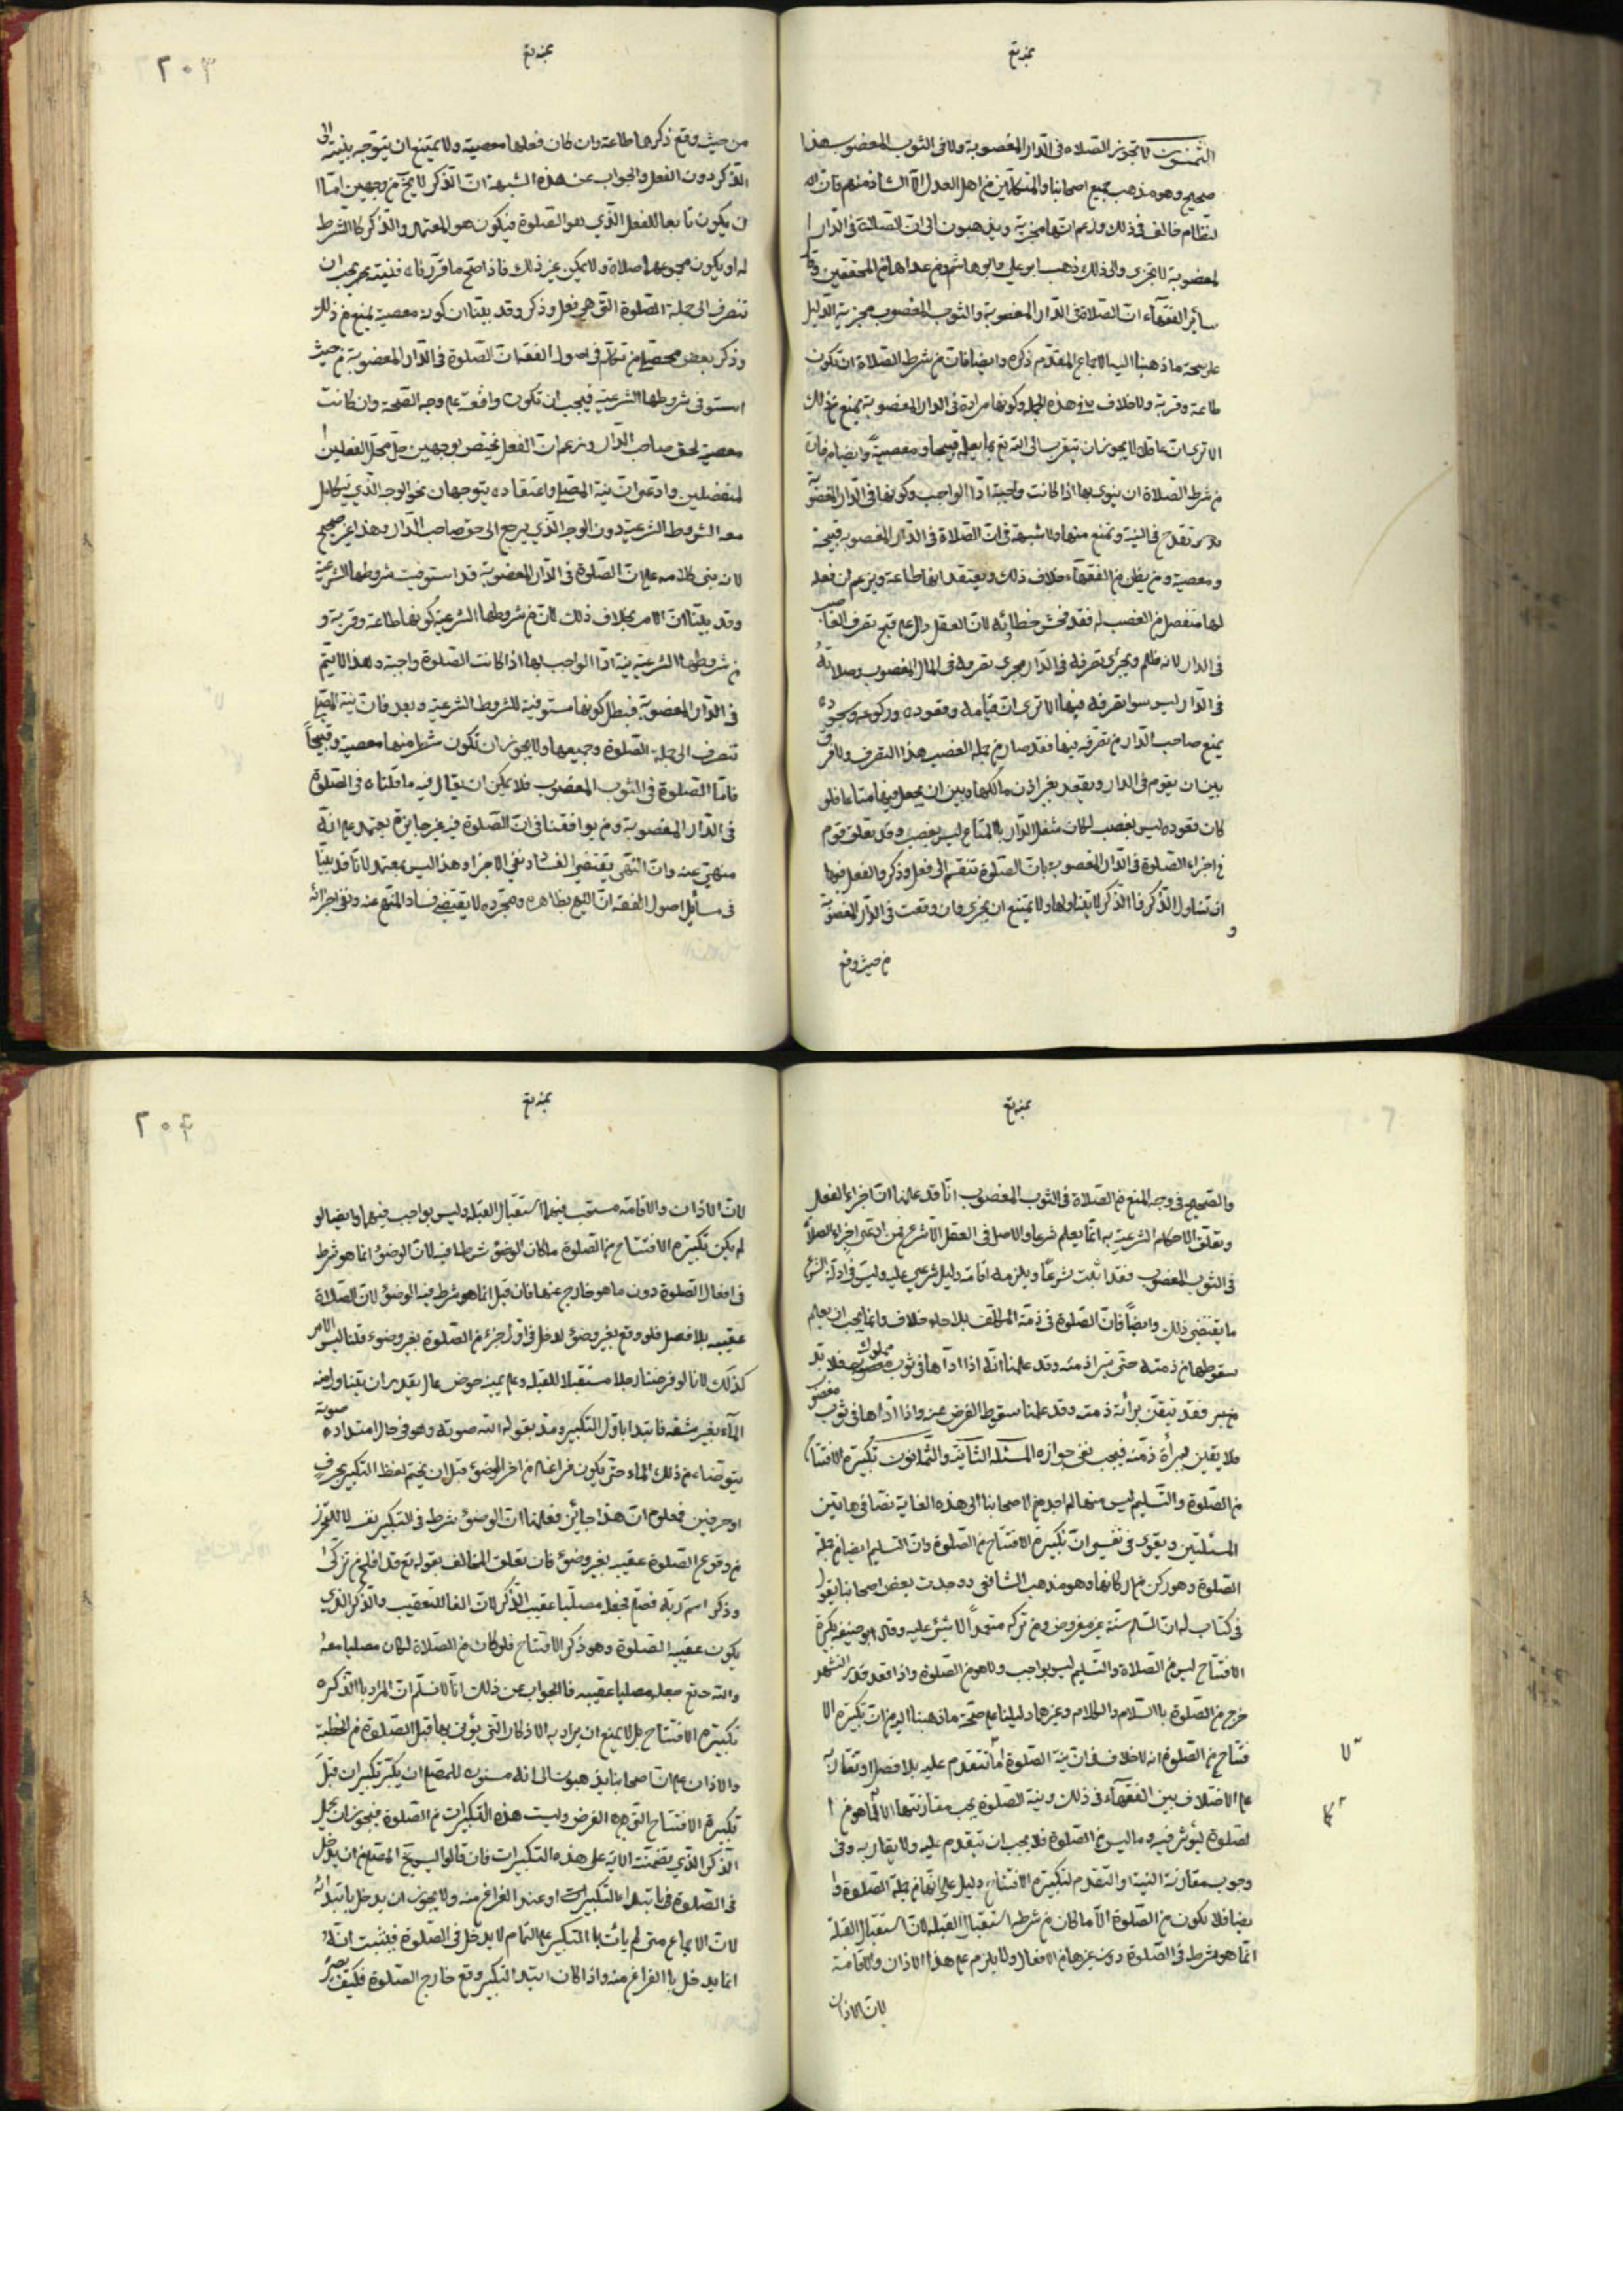 بمنه تع
الثمنون لا تجوز الصلاه فى الدار المغصوبة ولا فى الثوب المغصوب هذا
صحيح وهو مذهب جميع اصحابنا والمتكلمين من اهل العدل الا الشاذ منهم فان ال
نظام خالف فى ذلك وزعم انها مجزية ويذهبون الى ان الصلاة فى الدار ا
لمغصوبة لا تجزى والى ذلك ذهب ابو على وابو هاشم ومن عداهما من المحققين وقا
سائر الفقهآء ان الصلاة فى الدار المغصوبة والثوب المغصوب مجزية الدليل
على صحة ما ذهبنا اليه الاجماع المقدم ذكره وايضا فان من شرط الصلاة ان تكون
طاعة وقربة ولا خلاف فى هذه الجملة وكونها مرادة فى الدار المغصوبة يمنع من ذلك
الا ترى ان عاقلا لا يجوز ان يتقرب الى الله تع بما يعلم قبيحا ومعصية وايضا فان
من شرط الصلاة ان ينوى بها اذا كانت واجبة اداء الواجب وكونها فى الدار المغصوبة
تقدح فى النية وتمنع منها ولا شبهة فى ان الصلاة فى الدار المغصوبه قبيحة
ومعصية ومن يظن من الفقهآء خلاف ذلك ويعتقد انها طاعة ويزعم ان فعله
لها منفصل من الغصب له فقد فحش خطائه لان العقل دال على قبح تصرف الغاصب
فى الدار لانه ظلم ويجرى تصرفه فى الدار مجرى تصرفه فى المال المغصوب وصلاته
فى الدار ليس سوا تصرفه فيها الا ترى ان قيامه وقعوده وركوعه وسجوده
يمنع صاحب الدار من تصرفه فيها فقد صار من جملة الغصب هذا التصرف ولا فرق
بين ان يقوم فى الدار ويقعد بغير اذن مالكها وبين ان يجعل فيها متاعا فلو
كان قعوده ليس بغصب لكان شغل الدار بالمتاع ليس بغصب وقد تعلق قوم
فى اجزاء الصلوة فى الدار المغصوبه بان الصلوة تنقسم الى فعل وذكر والفعل فيها
ان تناول الذكر فا الذكر لا يتناولها ولا يمتنع ان يجزى وان وقعت فى الدار المغصوبة
و
من حيث وقع
بمنه تع
٢٠٣
من حيث وقع ذكرها طاعة وان كان فعلها معصية ولا يمتنع ان يتوجه بنيته الى
الذكر دون الفعل والجواب عن هذه الشبهة ان الذكر لا يخ من وجهين اما ا
ن يكون تابعا للفعل الذي هو الصلوة فيكون هو المعتمد والذكر كا الشرط
له او يكون مجموعهما صلاة ولا يمكن غير ذلك فاذا صح ما قررناه فنيته يجب ان
تنصرف الى جملة الصلوة التى هى فعل وذكر وقد بينا ان كونه معصية يمنع من ذلك
وذكر بعض من تكلم فى اصول الفقه ان الصلوة فى الدار المغصوبة من حيث
استوفى شروطها الشرعية فيجب ان تكون واقعة على وجه الصحة وان كانت
معصية لحق صاحب الدار وزعم ان الفعل يختص بوجهين حل محل الفعلين ا
لمنفصلين وادعى ان نية المصلى واعتقاده يتوجهان نحو الوجه الذي يتكامل
معه الشروط الشرعية دون الوجه الذي يرجع الى حق صاحب الدار وهذا غير صحيح
لانه بنى كلامه على ان الصلوة فى الدار المغصوبة قد استوفيت شروطها الشرعية
وقد بينا ان الامر بخلاف ذلك لان من شروطها الشرعية كونها طاعة وقربة و
من شروطها الشرعية نية اداء الواجب بها اذا كانت الصلوة واجبة وهذا لا يتم
فى الدار المغصوبة فبطل كونها مستوفية للشروط الشرعية وبعد فان نية المصلى
تنصرف الى جملة الصلوة وجميعها ولا يجوز ان تكون شئ منها معصية وقبيحاً
فاما الصلوة فى الثوب المغصوب فلا يمكن ان يقال فيه ما قلناه فى الصلوة
فى الدار المغصوبة ومن يوافقنا فى ان الصلوة فيه غير جايزة يعتمد على انه
منهى عنه وان النهى يقتضى الفساد ونفى الاجزا وهذا ليس بمعتمد لانا قد بينا
فى مسائل اصول الفقه ان النهى بظاهره ومجرده لا يقتضى فساد المنهى عنه ونفى اجزائه
بمنه تع
والصحيح فى وجه المنع من الصلاة فى الثوب المغصوب انا قد علمنا ان اجزاء الفعل
وتعلق الاحكام الشرعية به انما يعلم شرعا والاصل فى العقل الا شرع فمن ادعى اجزاء الصلاة
فى الثوب المغصوب فقد اثبت شرعًا ويلزمه اقامة دليل شرعي عليه وليس فى ادلة الشرع
ما يقتضى ذلك وايضًا فان الصلوة فى ذمة المكلف بلا خلاف وانما يجب ان يعلم
سقوطها من ذمته حتى تبرا ذمته وقد علمنا انه اذا اداها فى ثوب مملوك فلا بد
فقد تيقن برأة ذمته وقد علمنا سقوط الفرض عنه واذا اداها فى ثوب مغصوب
فلا يقين ببرأة ذمته فيجب نفى جوازه المسئلة الثانية والثمانون تكبيرة الافتتاح
من الصلوة والتسليم ليس منها لم اجد من لاصحابنا الى هذه الغاية نصا فى هاتين
المسئلتين ويقوى فى نفسى ان تكبيرة الافتتاح من الصلوة وان التسليم ايضا من جملة
الصلوة وهو ركن من اركانها وهو مذهب الشافعى ووجدت بعض اصحابنا يقول
فى كتاب له ان السلم سنة غير مفروض ومن تركه متعمداً لا شئ عليه وقال ابو حنيفه تكبيرة
الافتتاح ليس من الصلاة والتسليم ليس بواجب ولا هو من الصلوة واذا قعد قدر التشهد
خرج من الصلوة بالسلام والكلام وغيرهما دليلنا على صحة ما ذهبنا اليه من ان تكبيرة الا
فتتاح من الصلوة انه لا خلاف فى ان نية الصلوة اما تتقدم عليه بلا فصل او تقارنه
على الاختلاف بين الفقهآء فى ذلك ونية الصلوة يجب مقارنتها لما هو من ا
لصلوة ليؤثر فيه وما ليس من الصلوة فلا يجب ان تتقدم عليه ولا يقارنه وفى
وجوب مقارنة النية او التقدم لتكبيرة الافتتاح دليل على انها من جملة الصلوة وا
يضا فلا يكون من الصلوة الا ما كان من شرطه استقبال القبله لان استقبال القبلة
انما هو شرط فى الصلوة دون غيرها من الافعال ولا يلزم على هذا الاذان والاقامة
لان الاذان
بمنه تع
٢٠٤
لان الاذان والاقامة مستحب فيهما استقبال القبلة وليس بواجب فيهما وايضا لو
لم يكن تكبيرة الافتتاح من الصلوة ما كان الوضؤ شرطا فيه لان الوضؤ انما هو شرط
فى افعال الصلوة دون ما هو خارج عنها فان قيل انما هو شرط فيه الوضؤ لان الصلاة
عقيبه بلا فصل فلو وقع بغير وضؤ لدخل فى اول جزء من الصلوة بغير وضوء قلنا ليس الامر
كذلك لانا لو فرضنا رجلا مستقبلا للقبلة وعلى يمينه حوض عال يقدر ان يتناول منه
المآء بغير مشقه فابتدا باول التكبير ومد بقوله الله صوته وهو فى حال امتداد صوته
يتوضاء من ذلك الماء حتى يكون فراغه من اخر الوضؤ قبل ان يختم لفظ التكبير بحرف
او حرفين فمعلوم ان هذا جائز فعلمنا ان الوضؤ شرط فى التكبير نفسه لا للتحرز
من وقوع الصلوة عقيبه بغير وضؤ فان تعلق المخالف بقوله تع قد افلح من تزكى
وذكر اسم ربه فصلى فجعله مصليا عقيب الذكر لان الفا للتعقيب والذكر الذى
يكون عقيبه الصلوة وهو ذكر الافتتاح فلو كان من الصلاة لكان مصليا معه
والله تع جعله مصليا عقيبه فالجواب عن ذلك انا لا نسلم ان المراد با الذكر ه
تكبيرة الافتتاح بل لا يمنع ان يراد به الاذكار التى يؤتى بها قبل الصلوة من الخطبة
والاذان على ان اصحابنا يذهبون الى انه مسنون للمصلى ان يكبر تكبيرات قبل
تكبيرة الافتتاح التى هى الفرض وليست هذه التكبيرات من الصلوة فيجوز ان يحمل
الذكر الذي تضمنته الاية على هذه التكبيرات فان قالوا ليس يخ المصلى من ان يدخل
فى الصلوة فى ابتداء التكبيرات او عند الفراغ منه ولا يجوز ان يدخل بابتدائه
لان الاجماع متى لم يأت با التكبير على التمام لا يدخل فى الصلوة فيثبت انه
انما يدخل با الفراغ منه واذا كان ابتدا التكبير وقع خارج الصلوة فكيف يصير